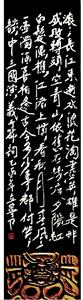 滚滚长江东逝水浪花淘尽英雄是非
成败转头空青山依旧在几度夕阳红
白髮渔樵江渚上惯看秋月春风一
壶浊酒喜相逢古今多少事都付笑
谈中三国演义